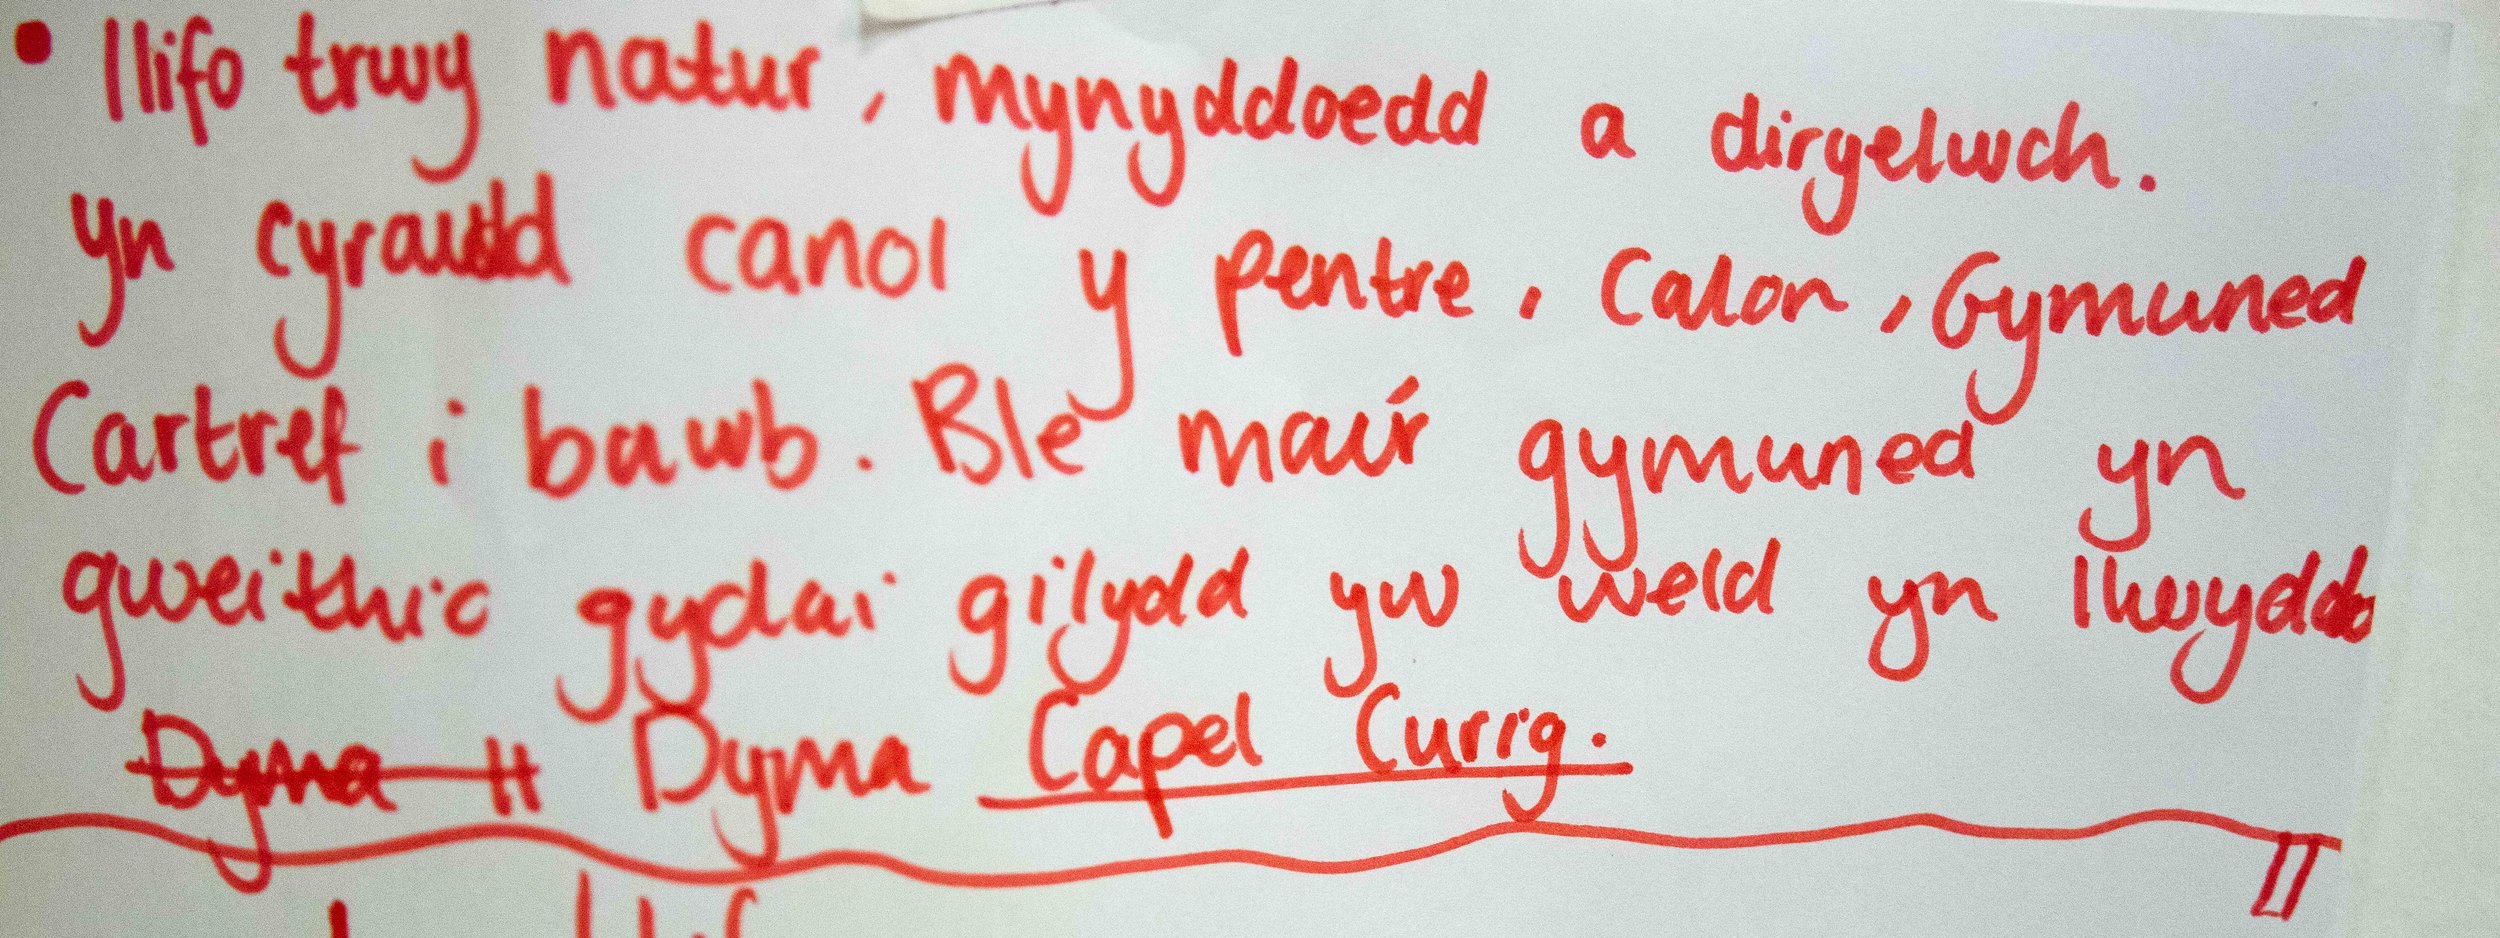 • llifo trwy natur, mynyddoedd a dirgelwch.
yn cyraedd canol y pentre, Calon, Gymuned
Cartref i bawb. Ble mai'r gymuned yn
gweithio gydai gilydd yw weld yn llwyddo
Dyma H Dyma Capel Curig.